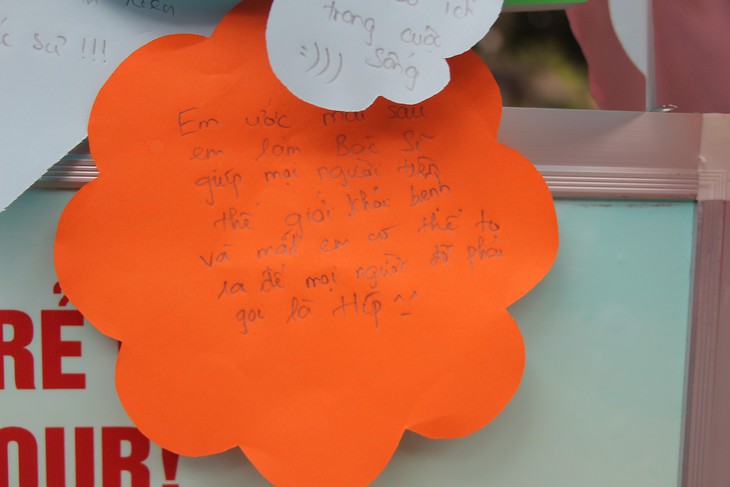 sư !!!
ích
trong cuộc
:)))) sống
Em ước mai sau
em làm Bác Sĩ
giúp mọi người trên
thế giới khỏi bệnh
và mắt em có thể to
ra để mọi người đỡ phải
gọi là Híp
RẺ
OUR!